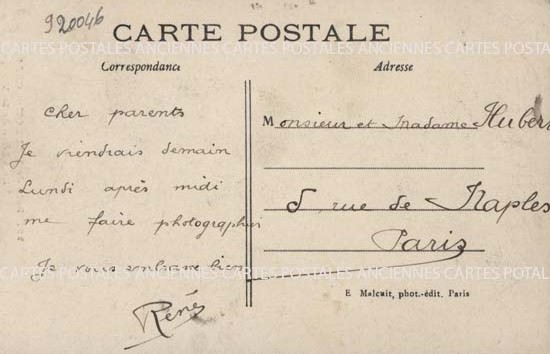 920046
CARTE POSTALE
ANCIENNES CARTES POSTALES ANCIENNES CARTES POSTALES ANCIENNES CARTES POSTA
Correspondance
Adresse
cher parents
Je viendrais demain
Lundi après midi
me faire photographier
Je vous embrasse bien
René
Monsieur et Madame Hubert
5 rue de Naples
Paris
CARTES POSTALES ANCIENNES CARTES POSTALES ANCIENNES CARTES POSTALES
E Malcuit, phot.-édit. Paris